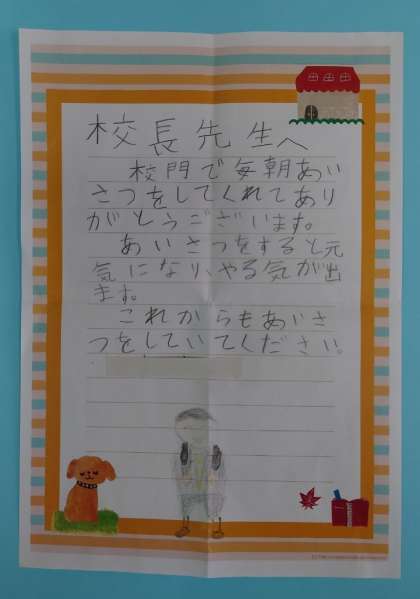 校長先生へ
校門で毎朝あい
さつをしてくれてあり
がとうございます。
あいさつをすると元
気になり、やる気が出
ます。
これからもあいさ
つをしていてください。